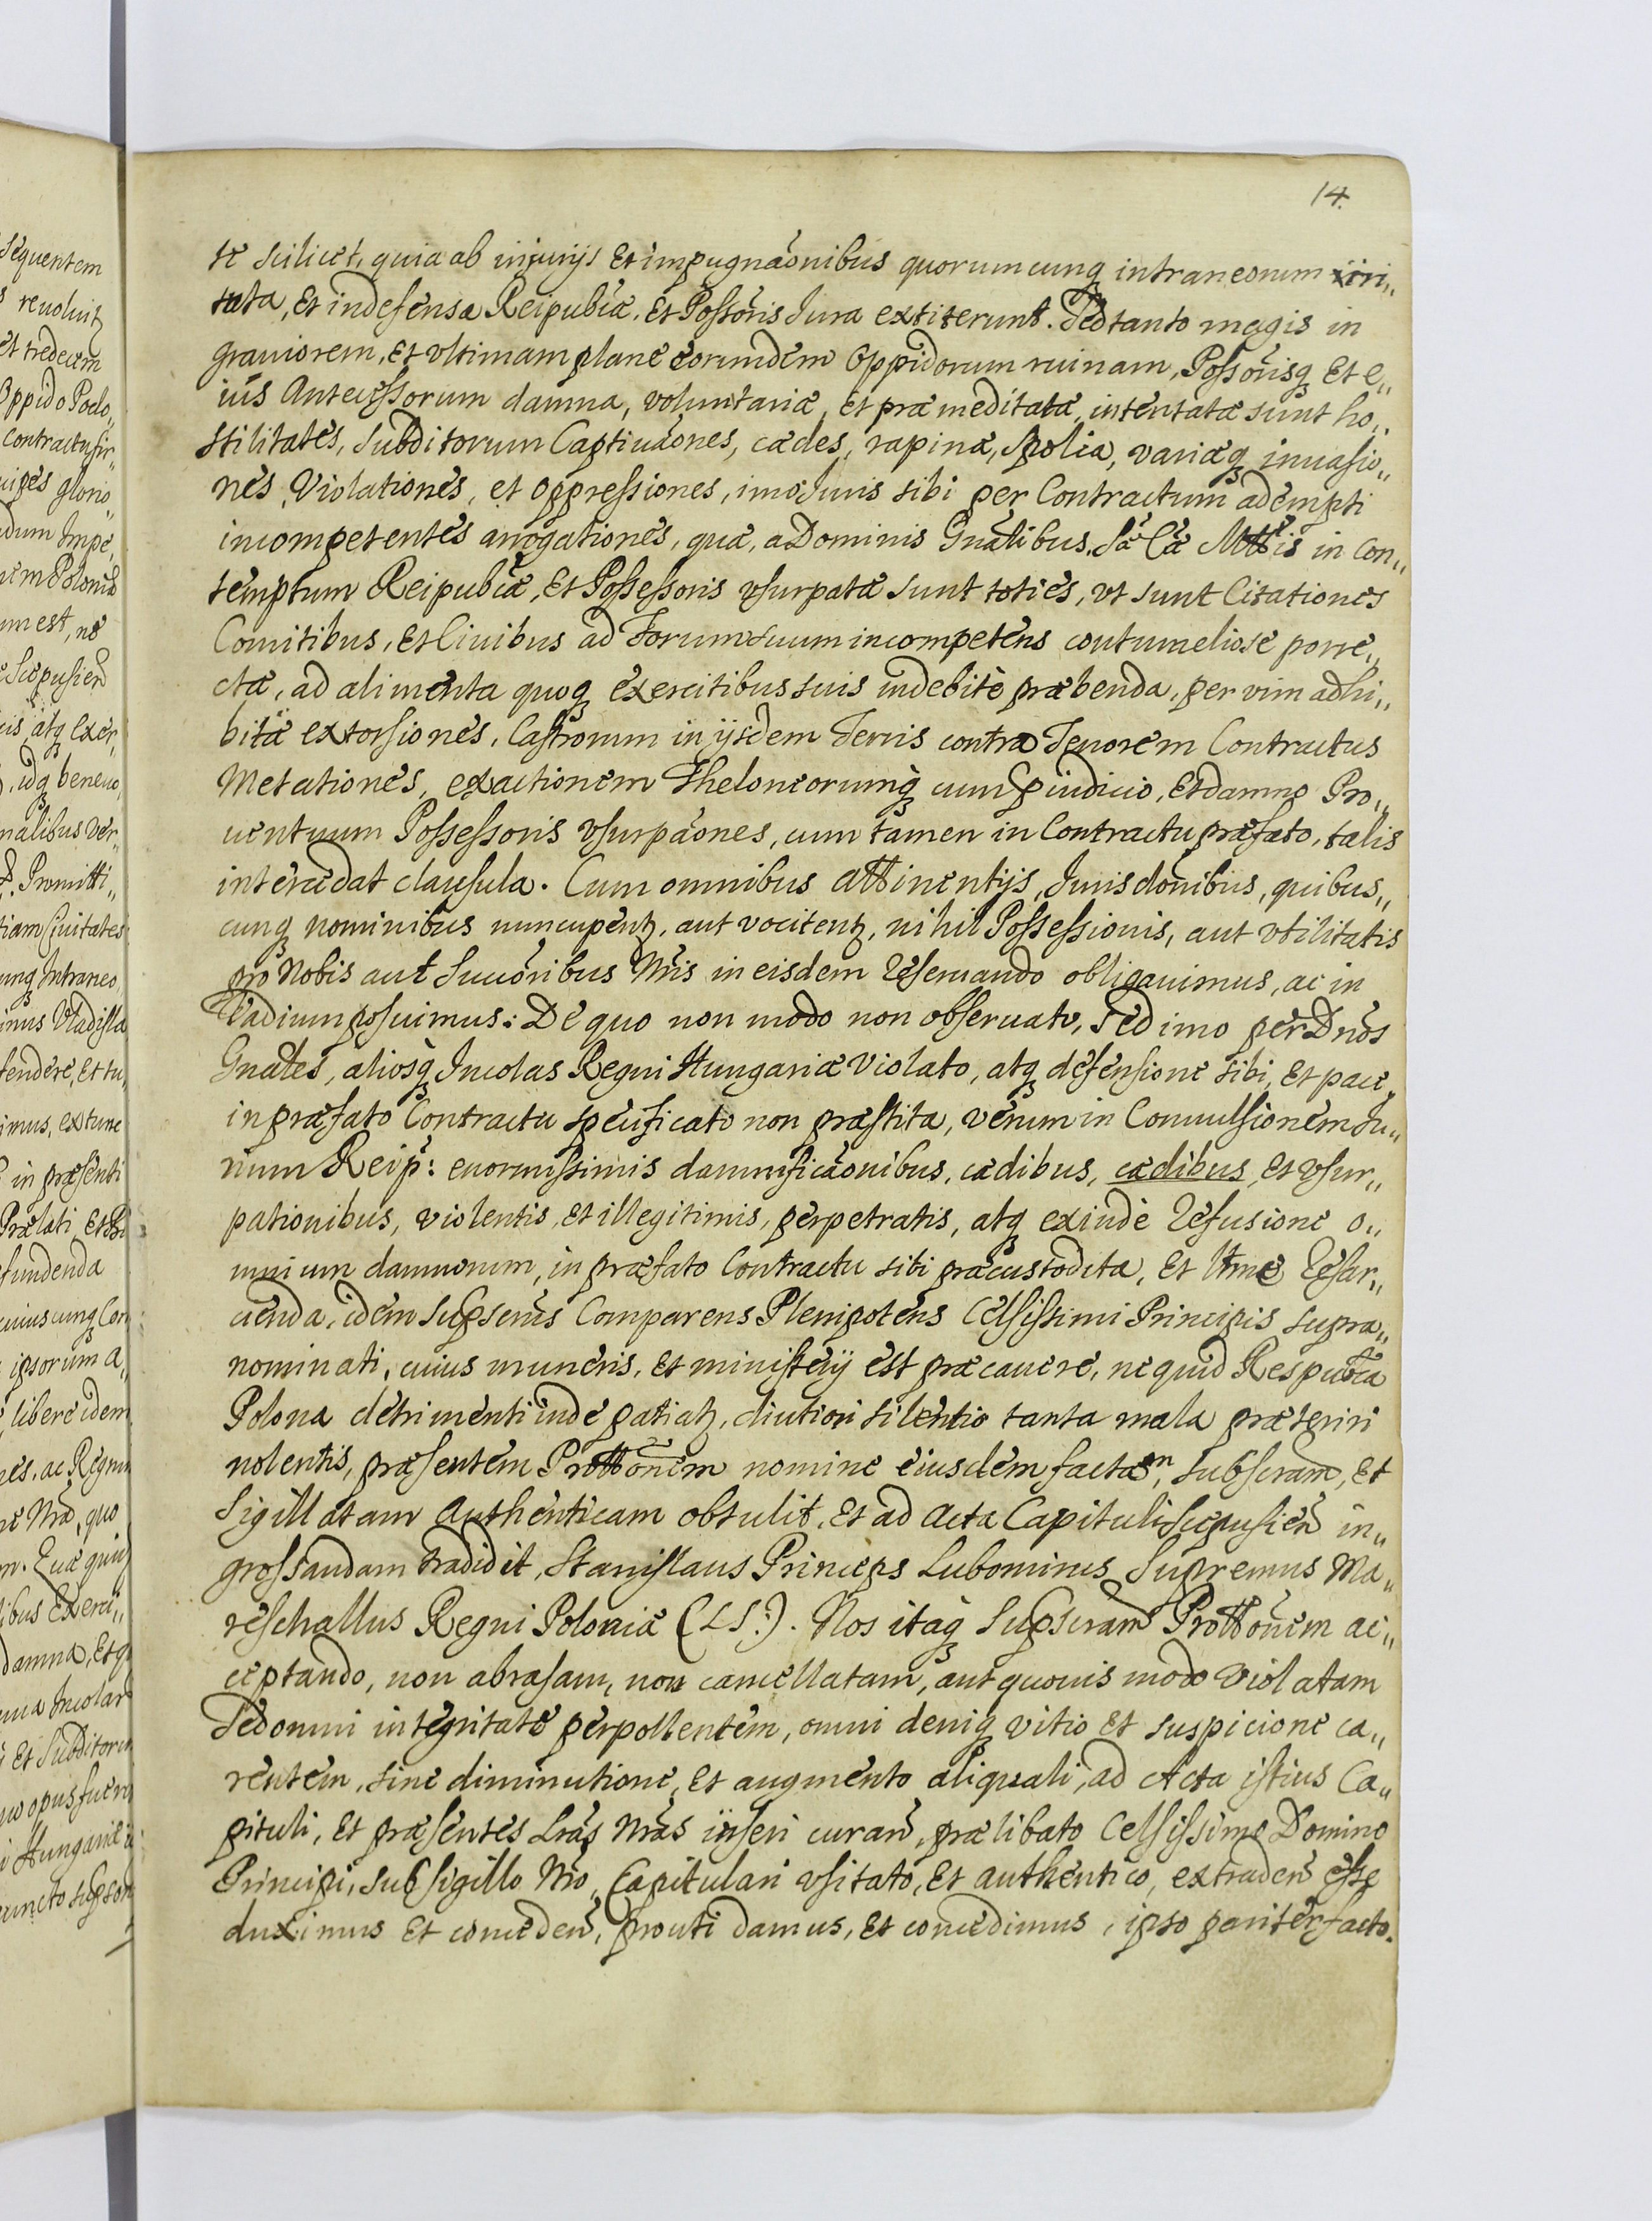 14.
te scilicet, quia ab injurijs Et impugnaõnibus quorumcunq intraneorum irri„
tata, Et indefensa Reipublcæ, Et Possõris Jura extiterunt. Sed tanto magis in
grauiorem, Et vltimam plane eorumdem Oppidorum ruinam, Possõrisq Et e„
ius Antecessorum damna, voluntariæ, et præmeditatæ, intentatæ sunt ho„
stilitates, Subditorum Captiuãones, cædes, rapinæ, spolia, variæq inuasio„
nes, Violationes, et oppressiones, imo Juris sibi per Contractum adempti
incompetentes arrogationes, quæ, a Dominis Gnãlibus, Sã Cæ Mttis in con„
temptum Reipublcæ, Et Possessoris vsurpatæ sunt toties, vt sunt Citationes
Comitibus, Et Ciuibus ad Forum suum incompetens contumeliose porre„
ctæ, ad alimenta quoq exercitibus suis indebitè præbenda, per vim adhi„
bitæ extorsiones, Castrorum in ijsdem Terris contra Tenorem Contractus
Metationes, exactionem Theloneorumq cum Pjudicio, Et damno Pro„
uentuum Possessoris vsurpãones, cum tamen in Contractu præfato, talis
intercedat clausula. Cum omnibus attinentijs, Jurisdõnibus, quibus„
cunq nominibus nuncupentz, aut vocitentz, nihil Possessionis, aut vtilitatis
pro Nobis aut Succõribus Nris in eisdem reseruando obligauimus, ac in
Vadium posuimus: De quo non modo non obseruato, sed imo per Dnos
Gnales, aliosq Incolas Regni Hungariæ Violato, atq defensione sibi, Et pace
in præfato Contractu specificato non præstita, verum in Conuulsionem Ju„
rium Reip: enormissimis damnificaõnibus, cædibus, cædibus, Et vsur„
pationibus, violentis, Et illegitimis, perpetratis, atq exinde refusione o„
mnium damnorum, in præfato Contractu sibi præcustodita, Et ltme resar„
cienda, idem supscrius Comparens Plenipotens Celsissimi Principis supra„
nominati, cuius muneris, Et ministerij est præcauere, ne quid Respublca
Polona detrimenti inde patiatz, diutiori silentio tanta mala præteriri
nolentis, præsentem Prottõnem nomine eiusdem factam, subscram, Et
Sigillatam Authenticam obtulit, Et ad Acta Capituli Scepusien in„
grossandam tradidit, Stanislaus Princeps Lubomirus Supremus Ma„
reschallus Regni Poloniæ (LS:). Nos itaq Supscram Prottõnem ac„
ceptando, non abrasam, non cancellatam, aut quouis modo violatam
sed omni integritate perpollentem, omni deniq vitio Et suspicione ca„
rentem, sine diminutione, Et augmento aliquali, ad Acta istius Ca„
pituli, Et præsentes Lras Nras inseri curan, prælibato Celsissimo Domino
Principi, sub sigillo Nro, Capitulari vsitato, Et authentico, extraden esse
duximus Et conceden, prouti damus, Et concedimus, ipso pariter facto.